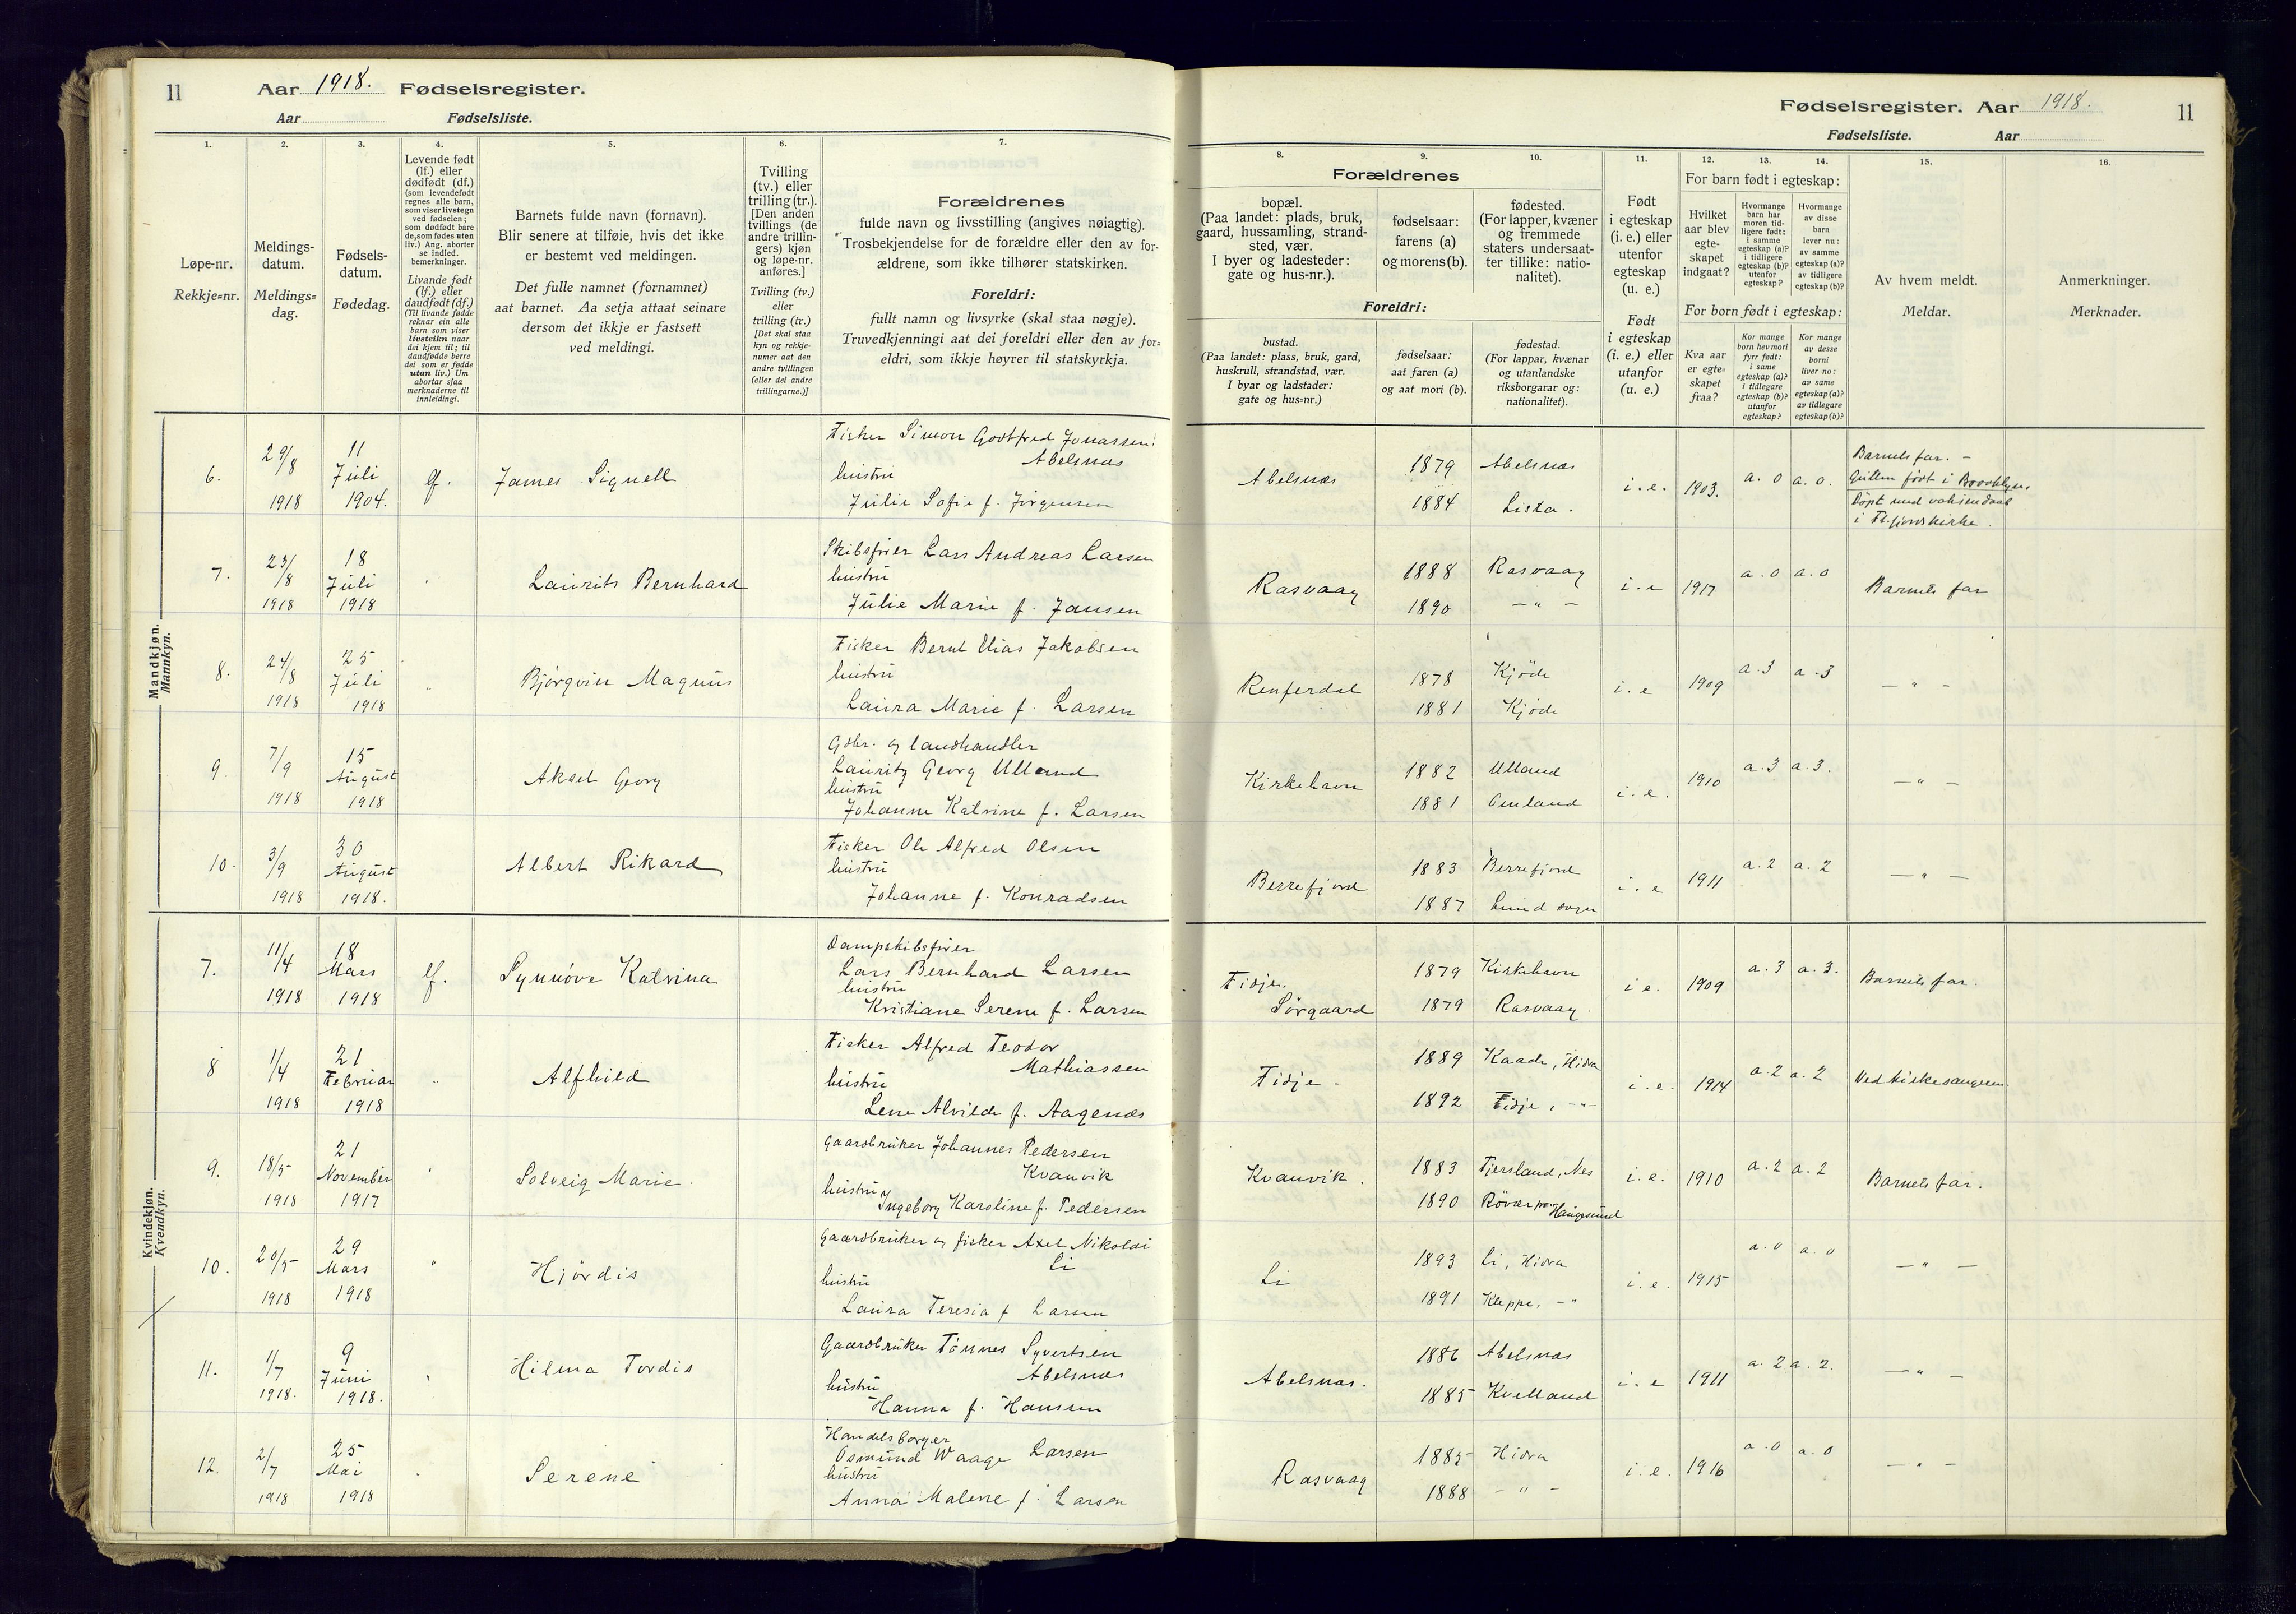 11
Aar 1918. Fødselsregister.
Aar
Fødselsliste.
1.
2.
3.
4.
5.
6.
7.
Løpe-nr.
Rekkje=nr.
Meldings-
datum.
Meldings=
dag.
Fødsels-
datum.
Fødedag.
Levende født
(lf.) eller
dødfødt (df.)
(som levendefødt
regnes alle barn,
som viser livstegn
ved fødselen;
som dødfødt bare
de, som fødes uten
liv.) Ang. aborter
se indled.
bemerkninger.
Livande født
(lf.) eller
daudfødt (df.)
(Til livande fødde
reknar ein alle
barn som viser
livsteikn naar
dei kjem til; til
daudfødde berre
dei som er fødde
utan liv.) Um
abortar sjaa
merknaderne til
innleidingi.
Barnets fulde navn (fornavn).
Blir senere at tilføie, hvis det ikke
er bestemt ved meldingen.
Det fulle namnet (fornamnet)
aat barnet. Aa setja attaat seinare
dersom det ikkje er fastsett
ved meldingi.
Tvilling
(tv.) eller
trilling (tr.).
[Den anden
tvillings (de
andre trillin-
gers) kjøn
og løpe-nr.
anføres.]
Tvilling (tv.)
eller
trilling (tr.)
[Det skal staa
kyn og rekkje-
numer aat den
andre tvillingen
(eller dei andre
trillingarne.)]
Forældrenes
fulde navn og livsstilling (angives nøiagtig).
Trosbekjendelse for de forældre eller den av for-
ældrene, som ikke tilhører statskirken.
Foreldri:
fullt namn og livsyrke (skal staa nøgje).
Truvedkjenningi aat dei foreldri eller den av for=
eldri, som ikkje høyrer til statskyrkja.
Mandkjøn.
Mannkyn.
6.
29/8
1918
11
Juli
1904.
James Signell
Fisker Simon Godtfred Jonassen
Abelsnæs
hustru
Julie Sofie f. Jørgensen
7.
23/8
1918
18
Juli
1918
"
Laurits Bernhard
Skibsfører Lars Andreas Larsen
hustru
Julie Marie f. Jansen
8.
24/8
1918
25
Juli
1918
"
Bjørgvin Magnus
Fisker Bernt Elias Jakobsen
hustru
Laura Marie f. Larsen
9.
7/9
1918
15
August
1918
Aksel Georg
Gdbr. og landhandler
Lauritz Georg Ulland
hustru
Johanne Katrine f. Larsen
10.
3/9
1918
30
August
1918.
Albert Rikard
Fisker Ole Alfred Olsen
hustru
Johanne f. Konradsen
Kvindekjøn.
Kvendkyn.
7.
11/4
1918
18
Mars
1918
lf.
Synnøve Katrina
Dampskibsfører
Lars Bernhard Larsen
hustru
Kristiane Serene f. Larsen
8
1/4
1918
21
Februar
1918
"
Alfhild
Fisker Alfred Teodor
Mathiassen
hustru
Lene Alvilde f. Aagenæs
9.
18/5
1918
21
November
1917
"
Solveig Marie.
Gaardbruker Johannes Pedersen
Kvanvik
hustru
Ingeborg Karoline f. Pedersen
10.
20/5
1918
29
Mars
1918
"
Hjördis
Gaardbruker og fisker Axel Nikolai
Li
hustru
Laura Teresia f Larsen
11.
1/7
1918.
9
Juni
1918.
"
Hilma Tordis
Gaardbruker Tønnes Syvertsen
Abelsnæs
hustru
Hanna f. Hanssen
12.
2/7
1918
25
Mai
1918
Serene
Handelsborger
Osmund Waage Larsen
hustru
Anna Malene f. Larsen
Fødselsregister. Aar 1918.
11
Fødselsliste.
Aar
8.
9.
10.
11.
12.
13.
14.
15.
16.
Forældrenes
bopæl.
(Paa landet: plads, bruk,
gaard, hussamling, strand-
sted, vær.
I byer og ladesteder:
gate og hus-nr.).
fødselsaar:
farens (a)
og morens (b).
fødested.
(For lapper, kvæner
og fremmede
staters undersaat-
ter tillike: natio-
nalitet).
Foreldri:
bustad.
(Paa landet: plass, bruk, gard,
huskrull, strandstad, vær.
I byar og ladstader:
gate og hus=nr.)
fødselsaar:
aat faren (a)
og aat mori (b).
fødestad.
(For lappar, kvænar
og utanlandske
riksborgarar og:
nationalitet).
Født
i egteskap
(i. e.) eller
utenfor
egteskap
(u. e.)
Født
i egteskap
(i. e.) eller
utanfor
(u. e.)
For barn født i egteskap:
Hvilket
aar blev
egte-
skapet
indgaat?
Hvormange
barn har
moren tid-
ligere født:
i samme
egteskap (a)?
i tidligere
egteskap (b)?
utenfor
egteskap?
Hvormange
av disse
barn
lever nu:
av samme
egteskap (a)?
av tidligere
egteskap (b)?
For born født i egteskap:
Kva aar
er egte=
skapet
fraa?
Kor mange
born hev mori
fyrr født:
i same
egteskap (a)?
i tidlegare
egteskap (b)?
utanfor
egteskap?
Kor mange
av desse
borni
liver no:
av same
egteskap (a)?
av tidlegare
egteskap (b)?
Av hvem meldt.
Meldar.
Anmerkninger.
Merknader.
Abelsnæs
1879
1884
Abelsnæs
Lista.
i. e.
1903.
a. 0
a. 0.
Barnets far. -
Gutten født i Brooklyn.
Döpt
i Fl.fjordkirke.
Rasvaag
1888
1890
Rasvaag
— " —
i. e
1917
a. 0
a. 0
Barnets far
1878
1881
Kjöde
Kjöde
i. e
1909
a. 3
a. 3
— " —
Kirkehavn
1882
1881
Ulland
Omland
i. e.
1910
a. 3
a. 3.
— " —
Berrefjord
1883
1887
Berrefjord
Lund sogn
i. e
1911
a. 2
a. 2
— " —
Fidje.
Sørgaard
1879
1879
Kirkehavn
Rasvaag.
i e.
1909
a. 3
a. 3.
Barnets far.
Fidje.
1889
1892
Kaade, Hidra
Fidje, -"-
i. e.
1914
a. 2
a. 2
Ved kirkesangeren.
Kvanvik.
1883
1890
Tjersland, Nes
Röver pr. Haugesund
i. e.
1910
a. 2
a. 2
Barnets far.
Li
1893
1891
Li, Hidra
Kleppe, -"
i. e.
1915
a. 0
a. 0
— " —
Abelsnæs.
1886
1885
Abelsnæs
Kvelland
i. e
1911
a. 2
a. 2.
— " —
Rasvaag
1885
1888
Hidra
- " -
i. e.
1916
a. 0
a. 0
— " —